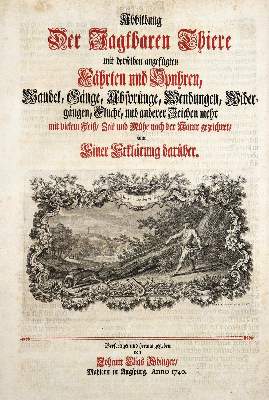 Abbildung
Der Jagtbaren Thiere
mit derselben angefügten
Fährten und Spuhren,
Wandel, Gänge, Absprünge, Wendungen, Wider-
gängen, Flucht, und anderer Zeichen mehr
mit vielem Fleiß, Zeit und Mühe nach der Natur gezeichnet,
samt
Einer Erklärung darüber.
Verfertiget und heraus gegeben
von
Johann Elias Ridinger,
Mahlern in Augspurg. Anno 1740.